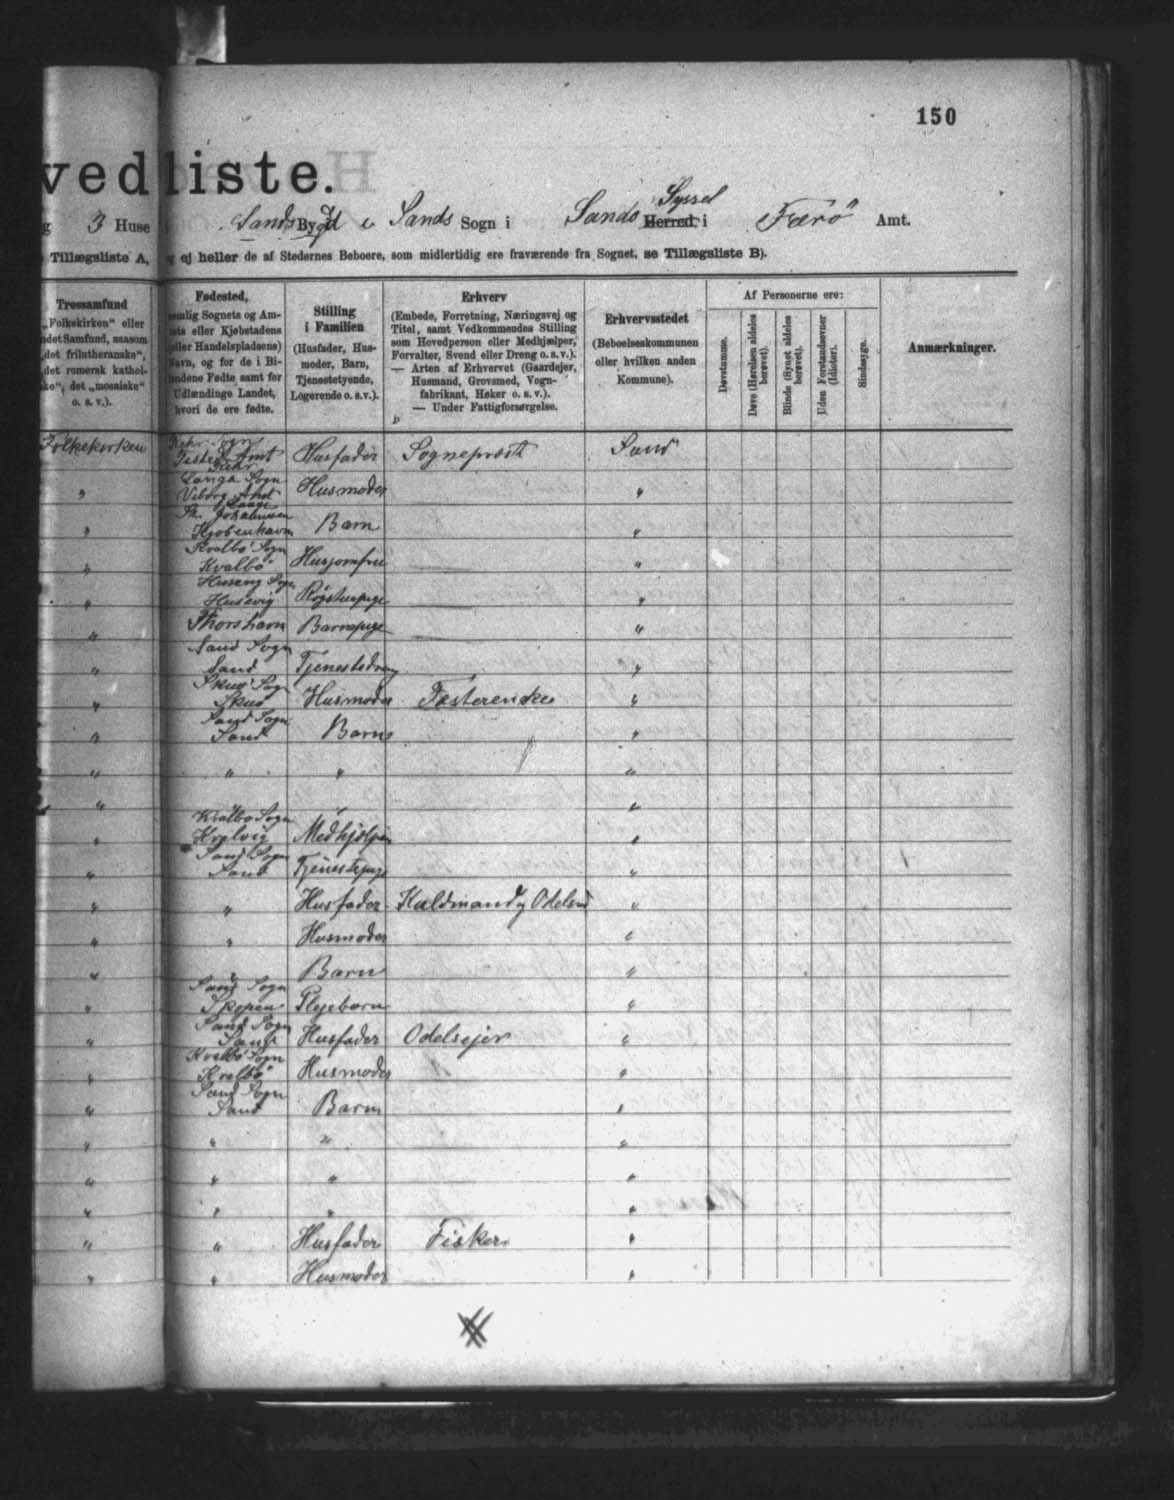 150
vedliste.
g 3 Huse Sands Bygd i Sands Sogn i Sandø Syssel Herred i Færø Amt.
Tillægsliste A, ej heller de af Stedernes Beboere, som midlertidig ere fraværende fra Sognet, se Tillægsliste B).
Trossamfund
„Folkekirken“ eller
ndet Samfund, saasom
„det frilutheranske“,
„det romersk kathol-
ske“, det „mosaiske“
o. s. v.).
Fødested,
nemlig Sognets og Am-
tets eller Kjøbstadens
(eller Handelspladsens)
Navn, og for de i Bi-
landene Fødte samt for
Udlændinge Landet,
hvori de ere fødte.
Stilling
i Familien
(Husfader, Hus-
moder, Barn,
Tjenestetyende,
Logerende o. s. v.).
Erhverv
(Embede, Forretning, Næringsvej og
Titel, samt Vedkommendes Stilling
som Hovedperson eller Medhjælper,
Forvalter, Svend eller Dreng o. s. v.).
— Arten af Erhvervet (Gaardejer,
Husmand, Grovsmed, Vogn-
fabrikant, Høker o. s. v.).
— Under Fattigforsørgelse.
Erhvervsstedet
(Beboelseskommunen
eller hvilken anden
Kommune).
Af Personerne ere:
Døvstumme.
Døve (Hørelsen aldeles
berøvet).
Blinde (Synet aldeles
berøvet).
Uden Forstandsevner
(Idioter).
Sindssyge.
Anmærkninger.
Folkekirken Sogn
Amt Husfader Sognepræst Sand
" Sogn
Viborg Amt Husmoder "
"
Kjøbenhavn Barn "
" Kvalbø Sogn
Kvalbø Husjomfru "
" Sogn
Husevig "
" Thorshavn Barnepige "
" Sand Sogn
Sand Tjenestedreng "
" Skuø Sogn
Skuø Husmoder Fæsterenke "
" Sand Sogn
Sand Barn "
" " " "
" " " "
" Kvalbø Sogn
Medhjælper "
" Sand Sogn
Sand Tjenestepige "
" " Husfader "
" " Husmoder "
" " Barn "
" Sand Sogn
Skopen Plejebarn "
" Sand Sogn
Sand Husfader Odelsejer "
" Kvalbø Sogn
Kvalbø Husmoder "
" Sand Sogn
Sand Barn "
" " " "
" " " "
" " " "
" " Husfader Fisker "
" " Husmoder "